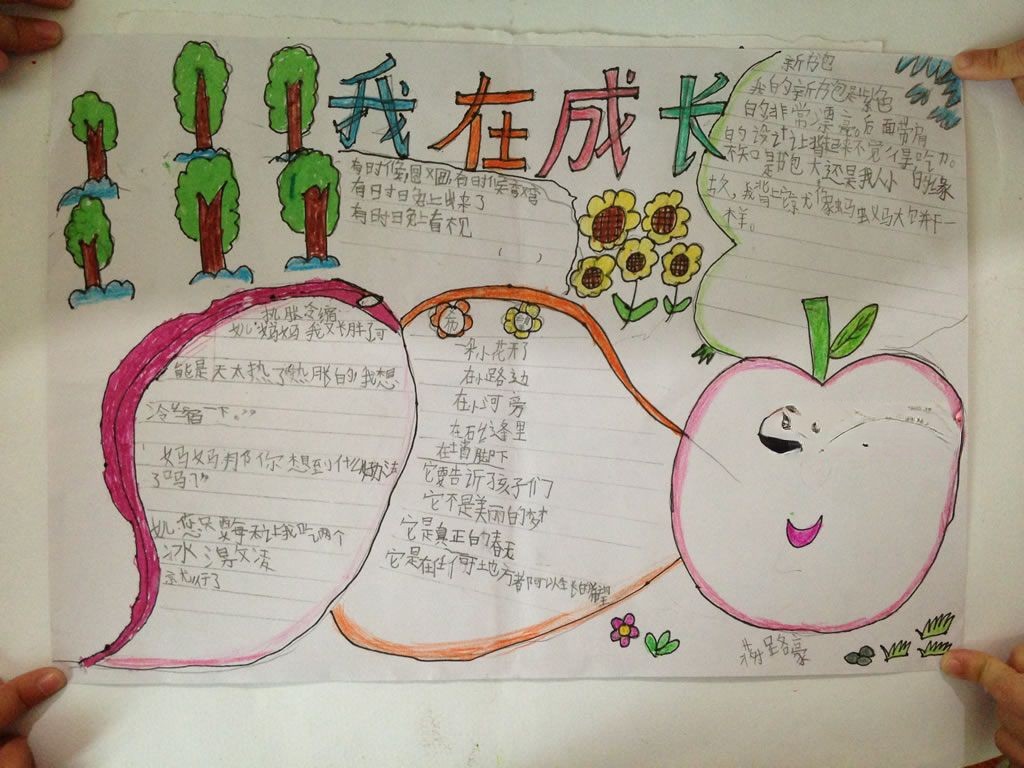 我在成长
有时候圆又圆,有时候弯弯
有时白兔上出来了
有时白兔上看不见
新书包
我的新书包是紫色
的非常漂亮。后面带有
的设计让背起来不觉得吃力。
不知是书包大还是我人小的缘
故,我背上它就像蚂蚁马大饼干一
样。
热胀冷缩
女儿“妈妈我又长胖了可
能是天太热了热胀的我想
冷缩一下。”
妈妈那你想到什么好办法
了吗?”
女儿您只要每天让我吃两个
冰淇凌
就行了
一朵小花开了
在小路边
在小河旁
在石缝里
在墙脚下
它要告诉孩子们
它不是美丽的梦
它是真正的春天
它是在任何地方都可以生长的希望
路豪